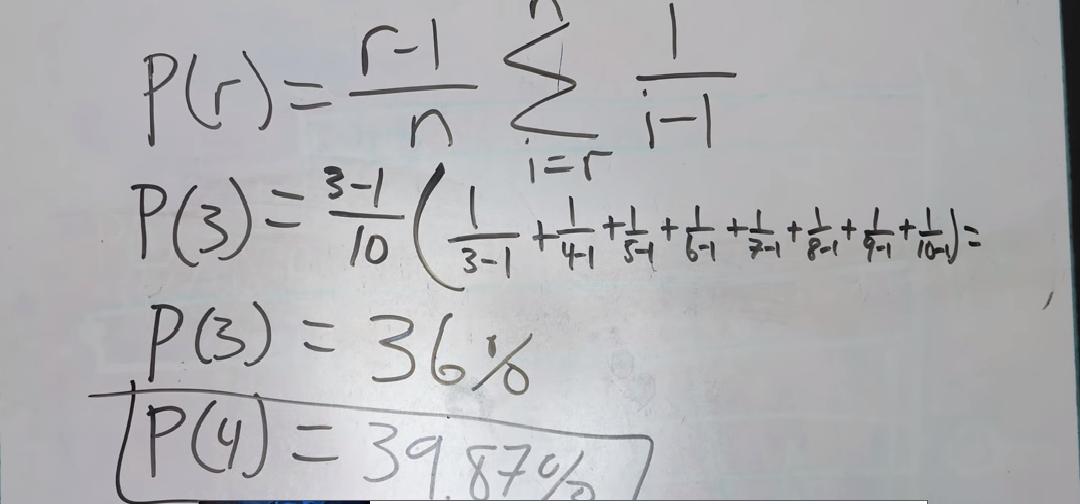 P(r) = \frac{r-1}{n} \sum_{i=r}^{n} \frac{1}{i-1}
P(3) = \frac{3-1}{10} ( \frac{1}{3-1} + \frac{1}{4-1} + \frac{1}{5-1} + \frac{1}{6-1} + \frac{1}{7-1} + \frac{1}{8-1} + \frac{1}{9-1} + \frac{1}{10-1} ) =
P(3) = 36%
P(4) = 39.87%